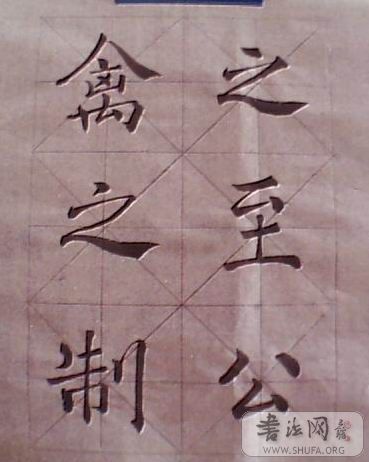 之至公
禽之制
書法网
WWW.SHUFA.ORG